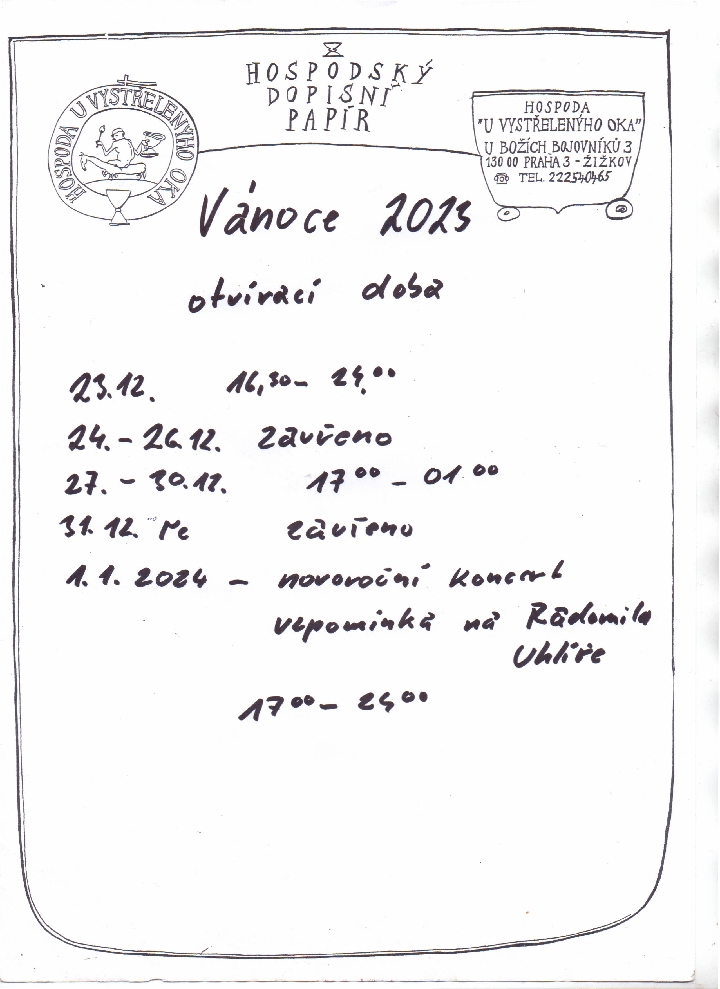 HOSPODSKÝ
DOPISNÍ
PAPÍR
HOSPODA U VYSTŘELENÝHO OKA
HOSPODA
"U VYSTŘELENÝHO OKA"
U BOŽÍCH BOJOVNÍKŮ 3
130 00 PRAHA 3 - ŽIŽKOV
☎ TEL. 222540465
Vánoce 2023
otvírací doba
23.12. 16,30 - 24,00
24. - 26.12. zavřeno
27. - 30.12. 17 00 - 01 00
31.12. Ne zavřeno
1.1. 2024 - novoroční koncert
vzpomínka na Radomila
Uhlíře
17 00 - 24 00